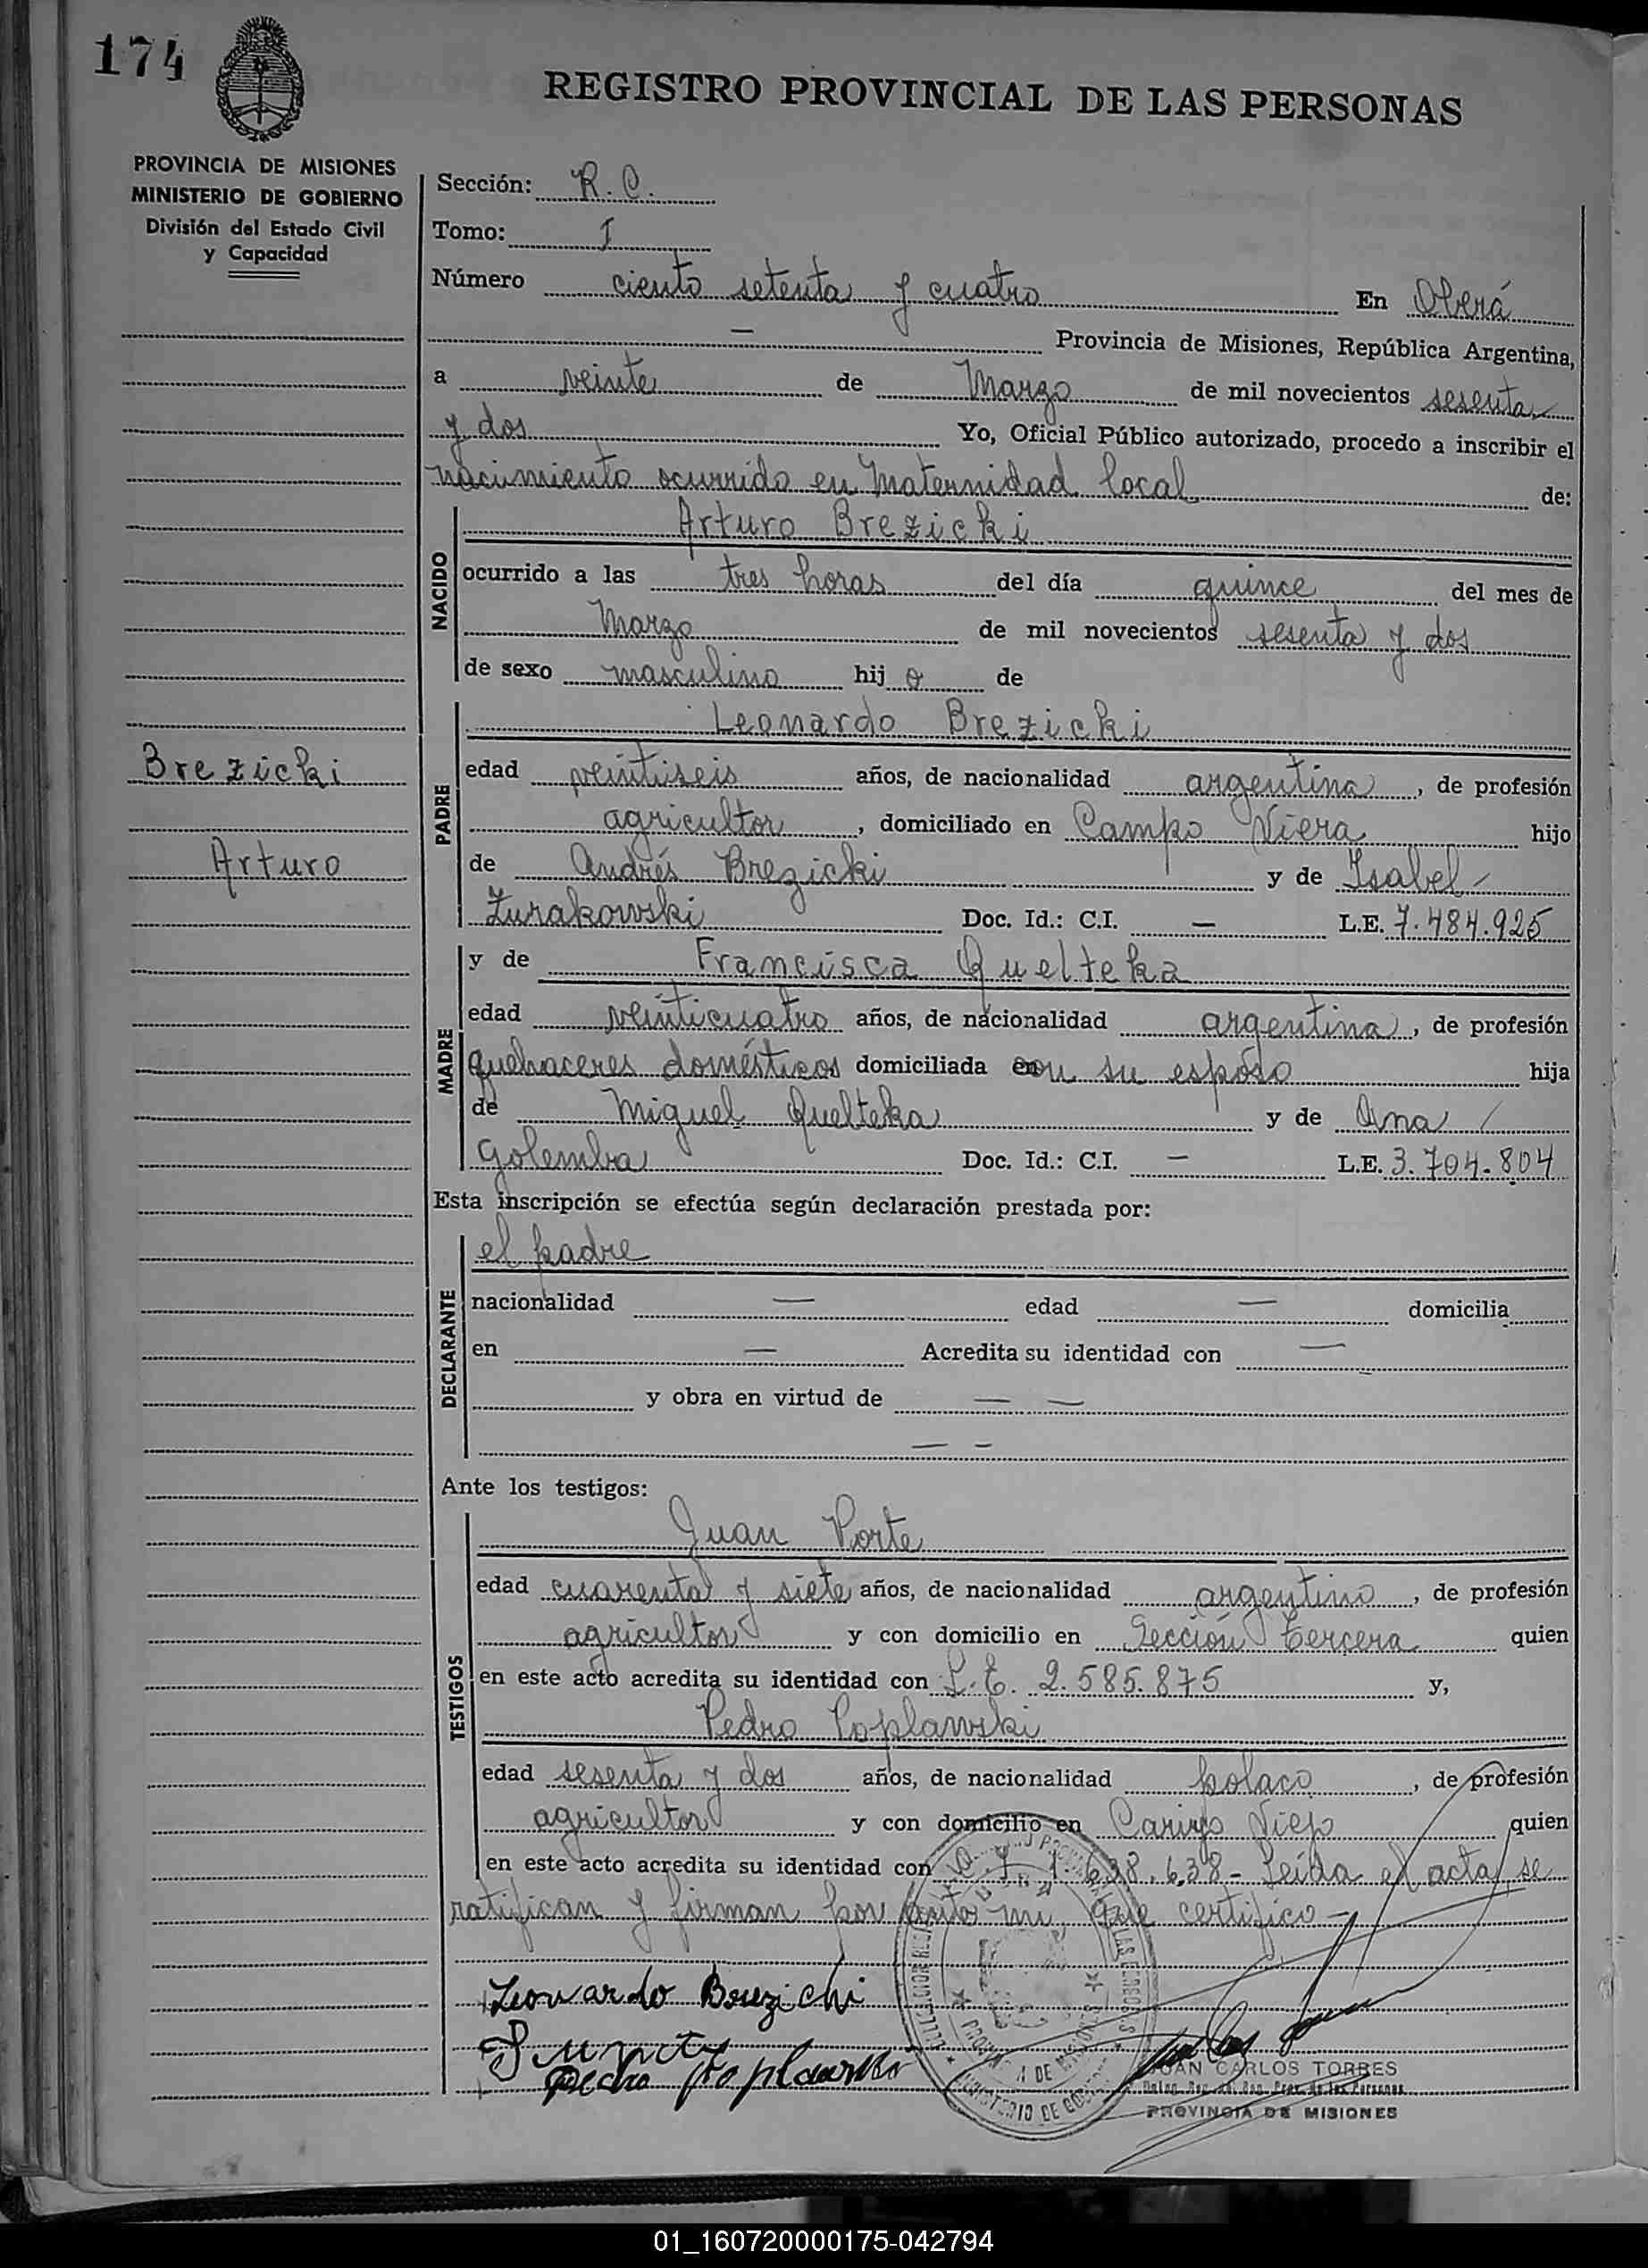 174
REGISTRO PROVINCIAL DE LAS PERSONAS
PROVINCIA DE MISIONES
MINISTERIO DE GOBIERNO
División del Estado Civil
y Capacidad
Sección: R. C.
Tomo: I
Número ciento setenta y cuatro En Oberá
— Provincia de Misiones, República Argentina,
a veinte de Marzo de mil novecientos sesenta
y dos Yo, Oficial Público autorizado, procedo a inscribir el
nacimiento ocurrido en Maternidad local de:
NACIDO
Arturo Brezicki
ocurrido a las tres horas del día quince del mes de
Marzo de mil novecientos sesenta y dos
de sexo masculino hijo de
PADRE
Leonardo Brezicki
Brezicki
Arturo
edad veintiseis años, de nacionalidad argentina, de profesión
agricultor, domiciliado en Campo Viera hijo
de Andrés Brezicki y de Isabel
Zurakowski Doc. Id.: C.I. — L.E. 7.484.925
MADRE
y de Francisca Quelteka
edad veinticuatro años, de nacionalidad argentina, de profesión
quehaceres domésticos domiciliada con su esposo hija
de Miguel Quelteka y de Ana
Golemba Doc. Id.: C.I. — L.E. 3.704.804
Esta inscripción se efectúa según declaración prestada por:
DECLARANTE
el padre
nacionalidad — edad — domicilia
en — Acredita su identidad con —
y obra en virtud de — —
— —
Ante los testigos:
TESTIGOS
Juan Porte
edad cuarenta y siete años, de nacionalidad argentino, de profesión
agricultor y con domicilio en Sección tercera quien
en este acto acredita su identidad con L.E. 2.585.875 y,
Pedro Poplawski
edad sesenta y dos años, de nacionalidad polaco, de profesión
agricultor y con domicilio en Viejo quien
en este acto acredita su identidad con 1.638.638 - Leída el acta, se
ratifican y firman por ante mi, que certifico -
Leonardo Brezicki
Pedro Poplawski
PROVINCIA DE MISIONES
MINISTERIO DE GOBIERNO
JUAN CARLOS TORRES
PROVINCIA DE MISIONES
01_160720000175-042794